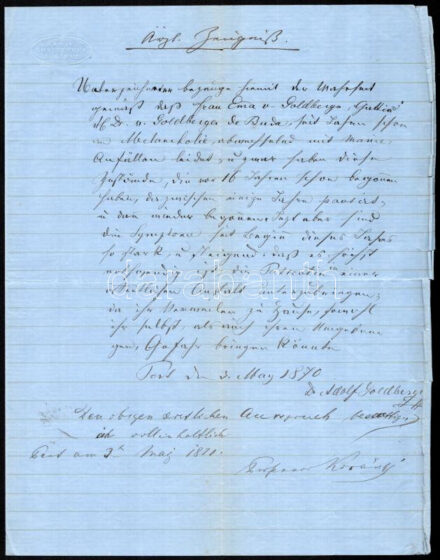 Ärztl. Zeugniß.
Unterzeichneter bezeuge hiemit der Wahrheit
gemäß daß Frau Ema v. Goldberger, Gattin
d. v. Goldberger de Buda, seit Jahren schon
an Melancholie, abwechselnd mit Manie
Anfällen leidet, u. zwar haben diese
Zustände, die vor 16 Jahren schon begonnen
haben, dazwischen einige Jahre pausirt,
u dann wieder begonnen. Jetzt aber sind
die Symptome seit Beginn dieses Jahres
so stark, u. daß es höchst
nothwendig ist die Patientin einer
Anstalt unterzubringen,
da ihr Verweilen zu Hause, sowohl
ihr selbst, als auch ihren Umgebun-
gen, Gefahr bringen könnte
Pest den 3. May 1870
Dr. Adolf Goldberger
Den obigen ärztlichen Ausspruch bestättige
ich vollinhaltlich
Pest am 3. Mai 1870.
Professor Korányi
darabanth